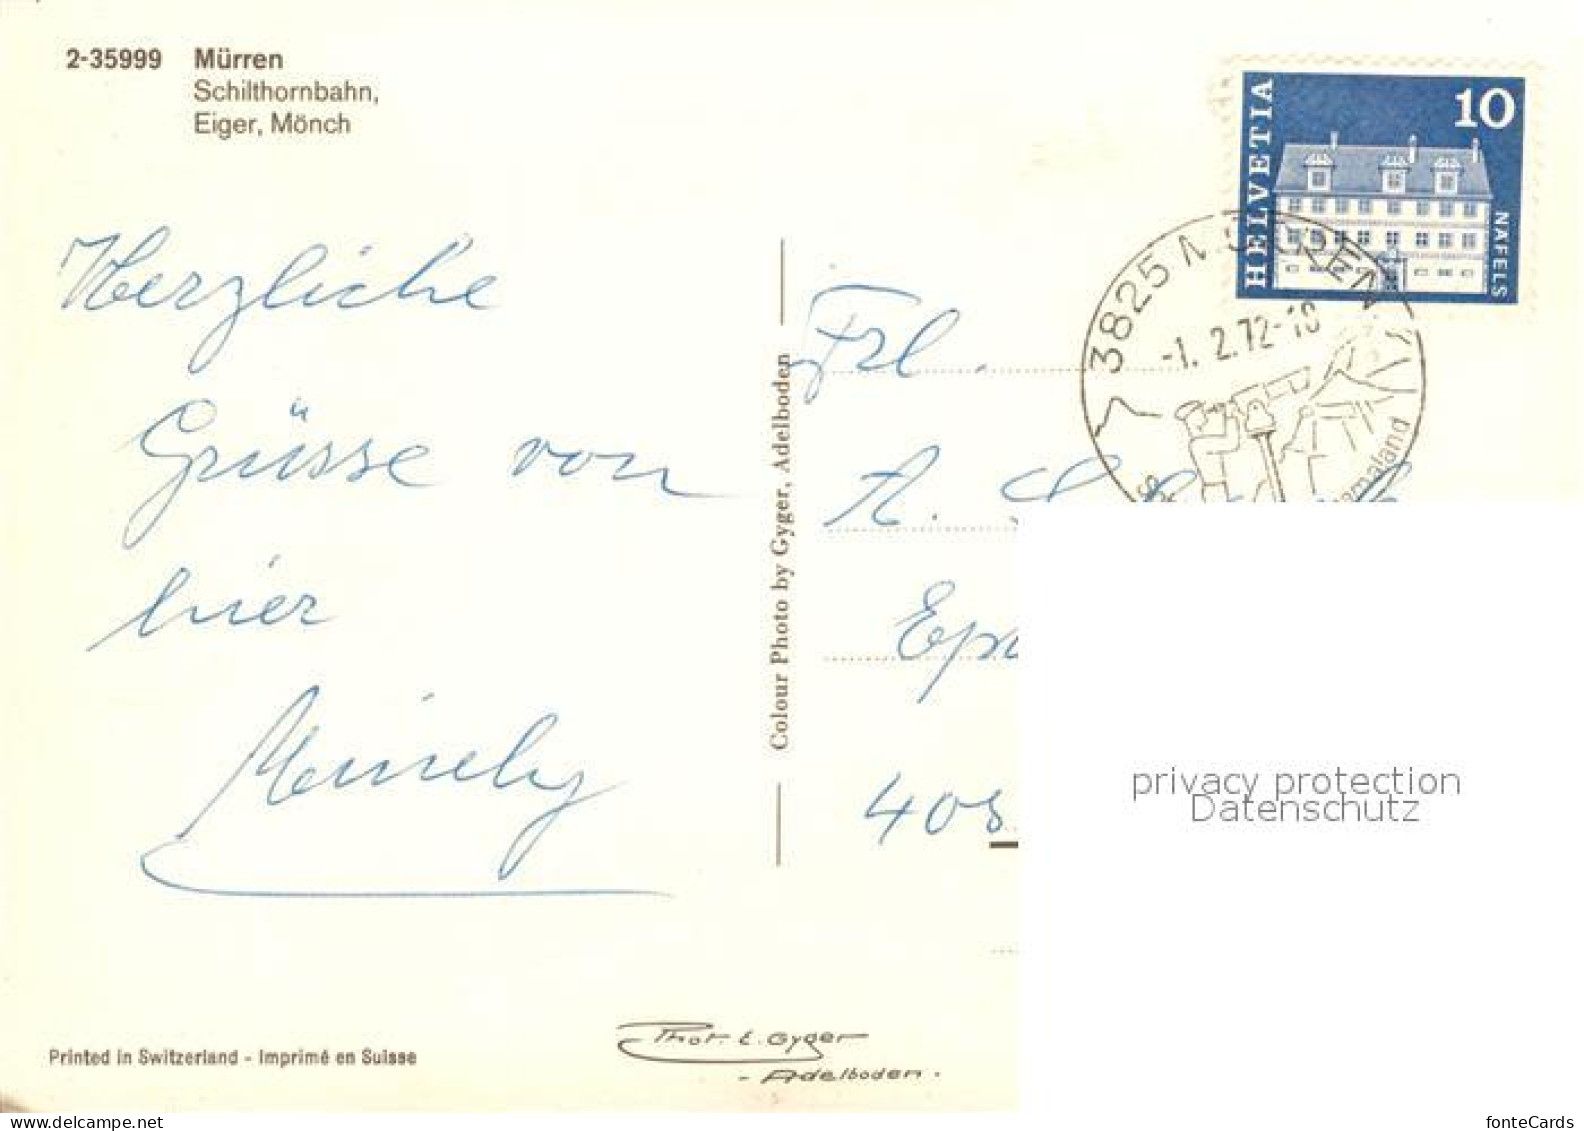 2-35999 Mürren
Schilthornbahn,
Eiger, Mönch
HELVETIA
10
NÄFELS
3825 MÜRREN
-1. 2.72-18
Herzliche
Grüsse von
hier
Colour Photo by Gyger, Adelboden
Frl.
A.
405
privacy protection
Datenschutz
Printed in Switzerland - Imprimé en Suisse
Phot. E. Gyger
- Adelboden.
fonteCards